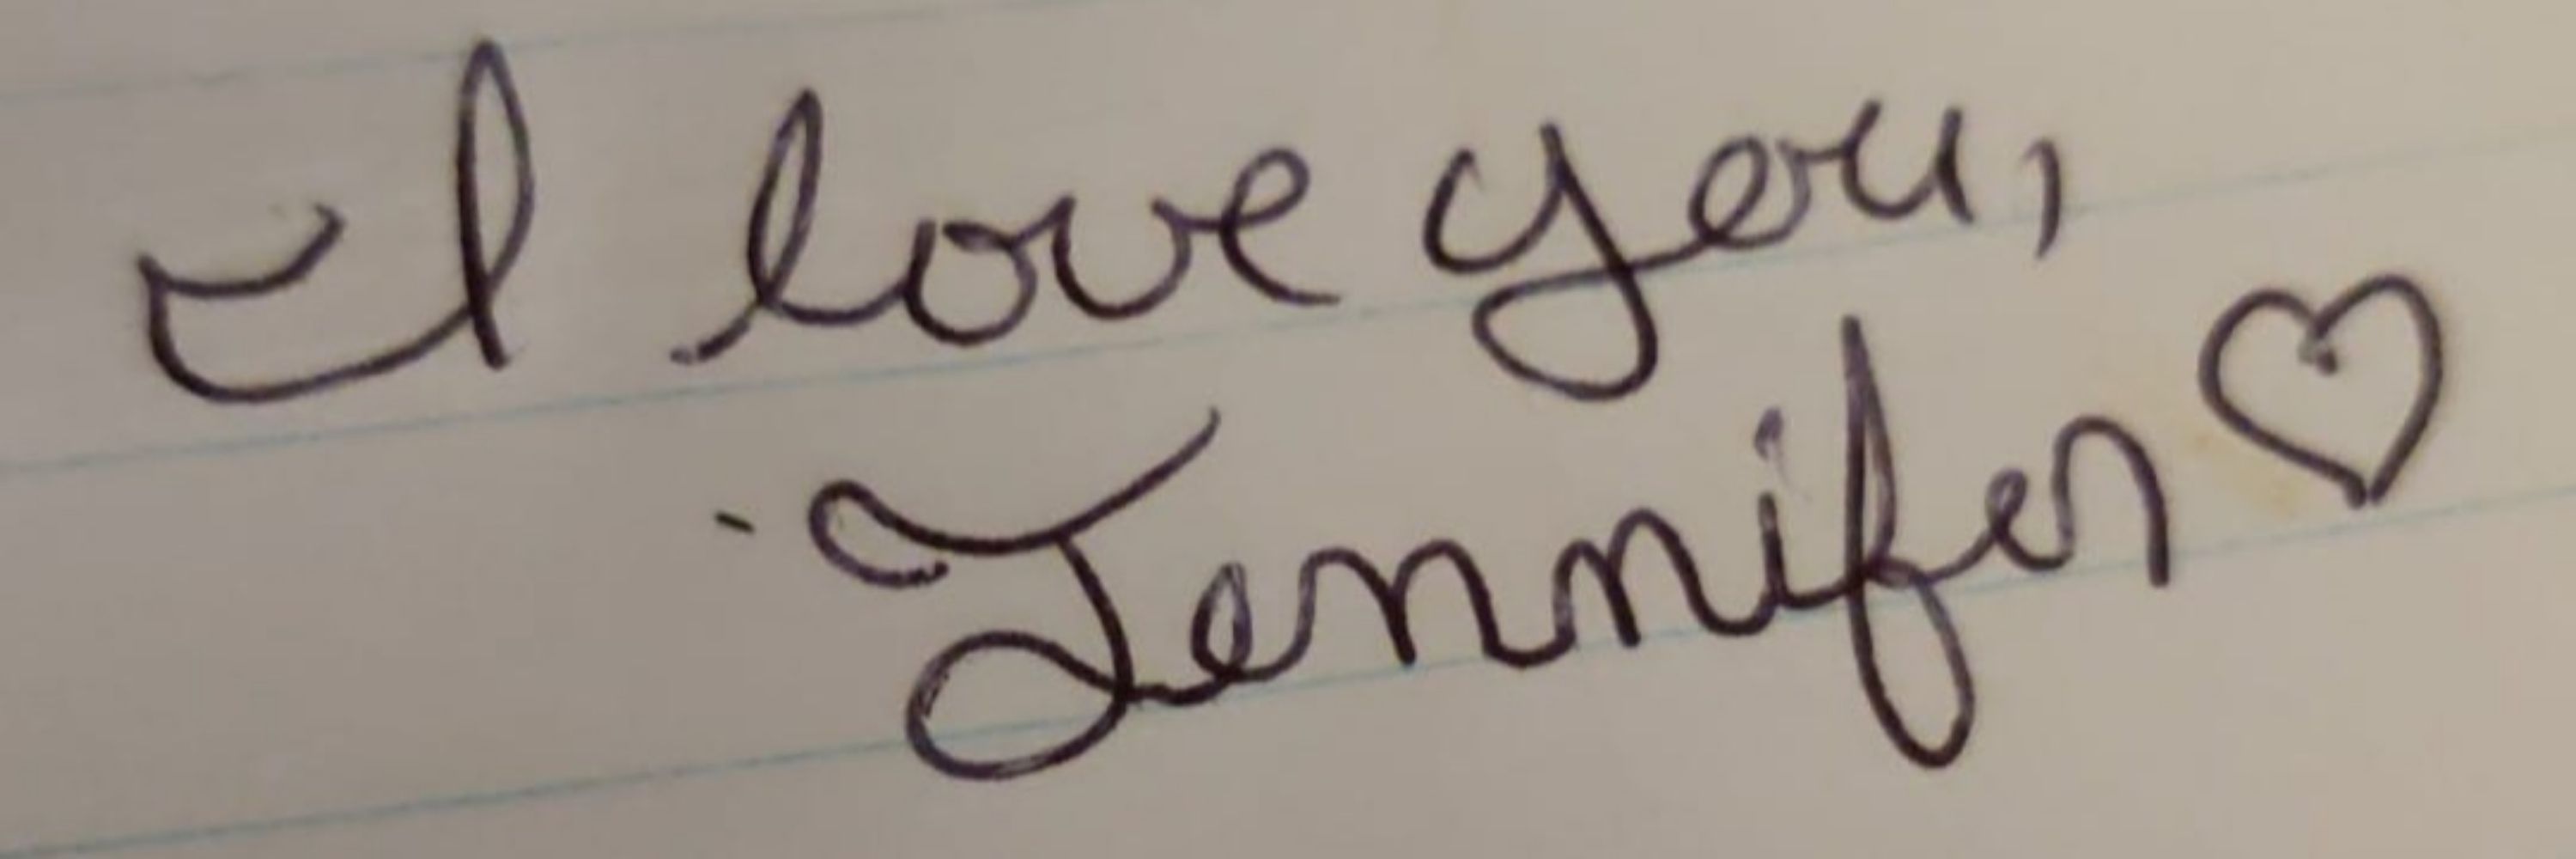 I love you,
- Jennifer ♡